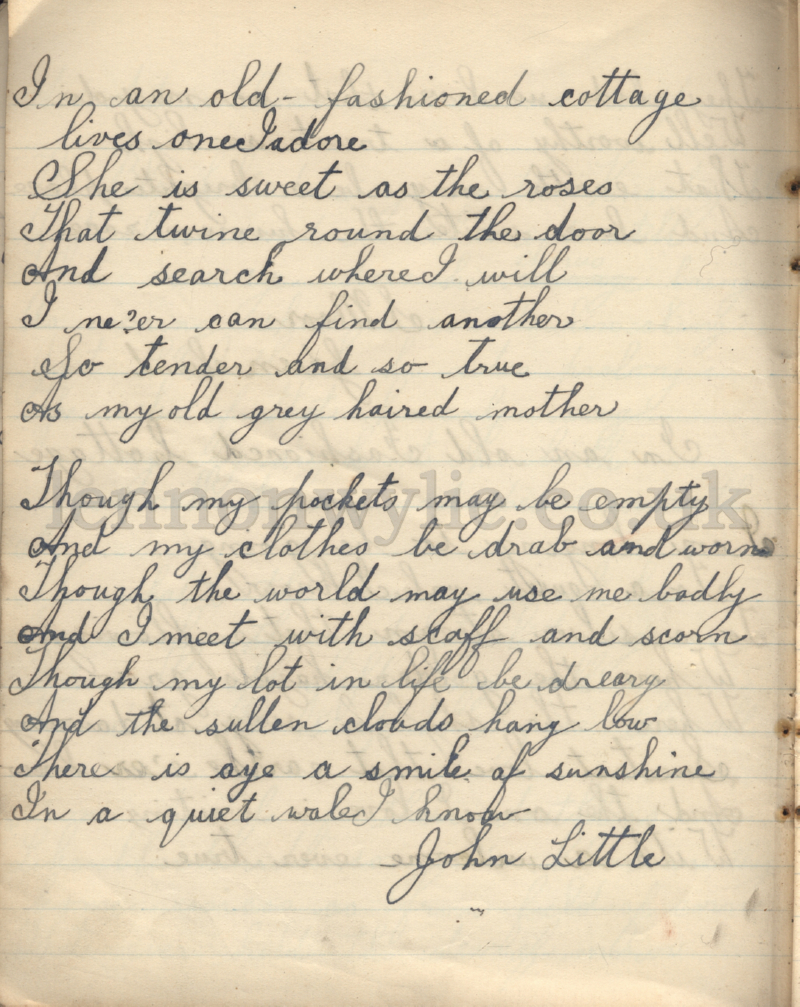 In an old-fashioned cottage
lives one I adore
She is sweet as the roses
That twine round the door
And search where I will
I ne?er can find another
So tender and so true
As my old grey haired mother
Though my pockets may be empty
lennonwylie.co.uk
And my clothes be drab and worn
Though the world may use me badly
And I meet with scoff and scorn
Though my lot in life be dreary
And the sullen clouds hang low
There is aye a smile of sunshine
In a quiet wale I know
John Little